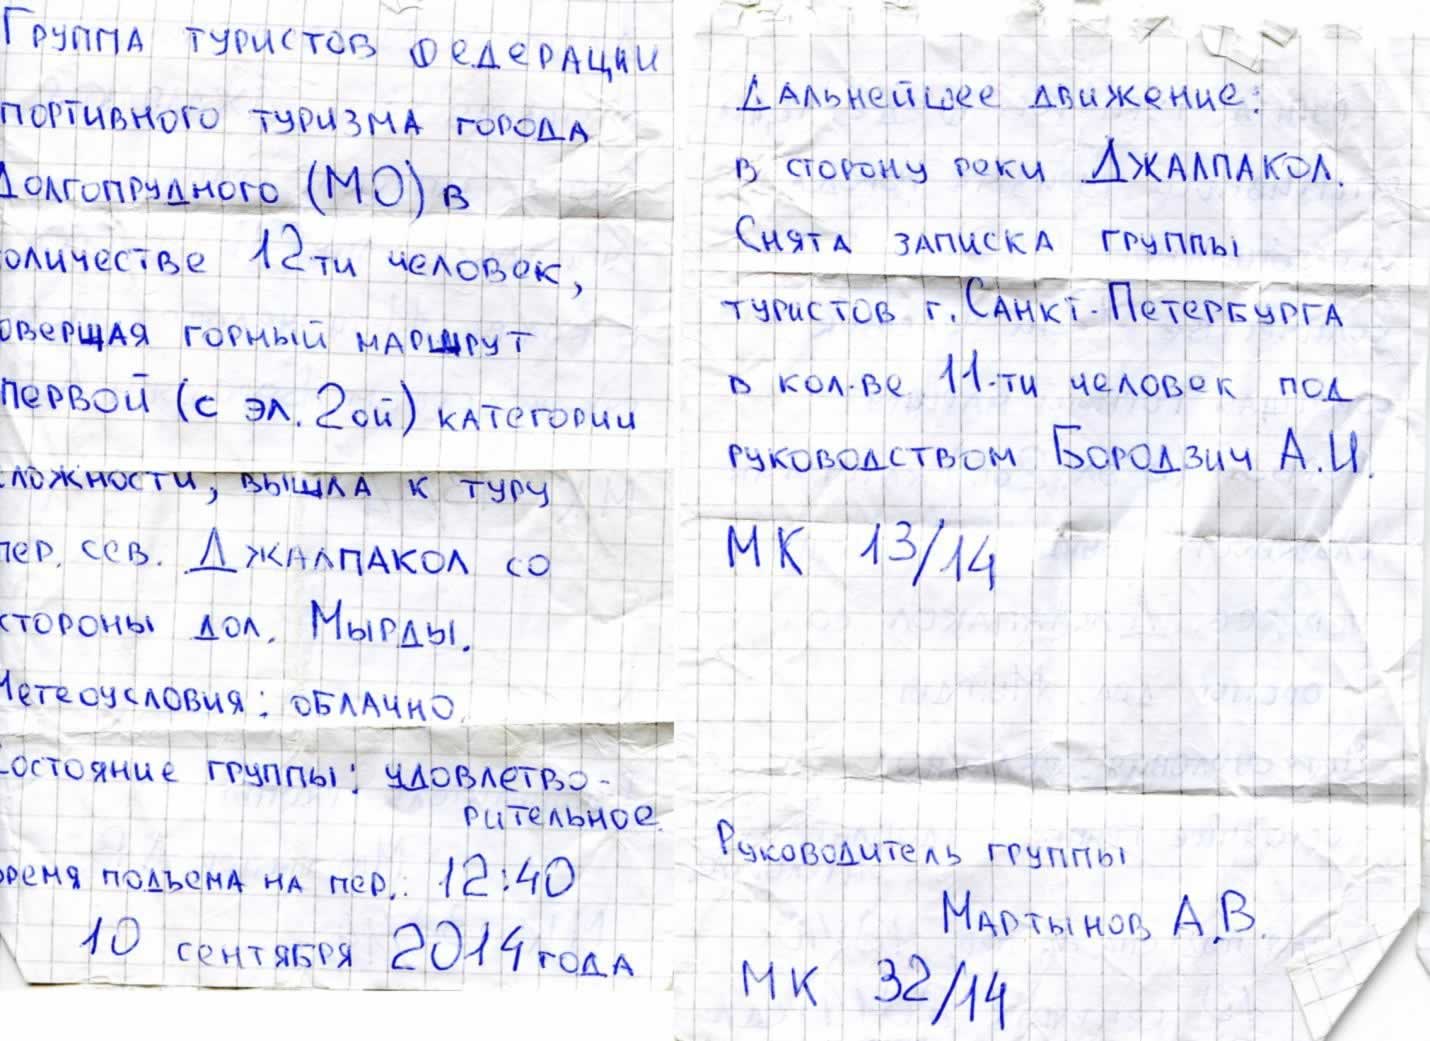 Группа туристов федерации
портивного туризма города
Долгопрудного (МО) в
оличестве 12ти человек,
овершая горный маршрут
первой (с эл. 2ой) категории
сложности, вышла к туру
пер. сев. Джалпакол со
стороны дол. Мырды.
Метеоусловия: облачно.
Состояние группы: удовлетво-
рительное.
ремя подъема на пер.: 12:40
10 сентября 2014 года
Дальнейшее движение:
в сторону реки Джалпакол.
Снята записка группы
туристов г. Санкт-Петербурга
в кол-ве 11-ти человек под
руководством Бородзич А.И.
МК 13/14
Руководитель группы
Мартынов А.В.
МК 32/14